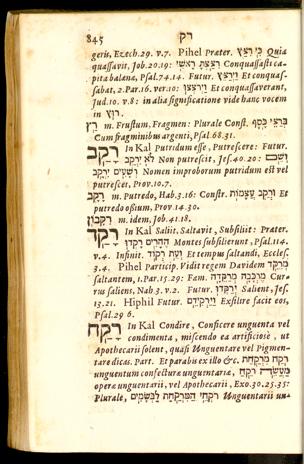 845 רק
geris, Ezech.29. v.7. Pihel Prater. כִּי רִצַּץ Quia
quassavit, Job.20.19: רִצַּצְתָּ רָאשֵׁי Conquassasti ca-
pita balena, Psal.74.14. Futur. וַיְרַצֵּץ Et conquas-
sabat, 2.Par.16. ver.10: וַיְרֹצְצוּ Et conquassaverant,
Jud.10. v.8: in alia significatione vide hanc vocem
in רוּץ.
רַץ m. Frustum, Fragmen: Plurale Const. בְּרַצֵּי כָסֶף
Cum fragminibus argenti, Psal.68.31.
רָקַב In Kal Putridum esse, Putrescere: Futur.
לֹא יִרְקַב Non putrescit, Jes.40.20: וְשֵׁם
רְשָׁעִים יִרְקָב Nomen improborum putridum est vel
putrescet, Prov.10.7.
רָקָב m. Putredo, Hab.3.16: Constr. וּרְקַב עֲצָמוֹת Et
putredo ossium, Prov 14.30.
רִקָּבוֹן m. idem, Job.41.18.
רָקַד In Kal Saliit, Saltavit, Subsiliit: Prater.
הֶהָרִים רָקְדוּ Montes subsilierunt, Psal.114.
v.4. Infinit. וְעֵת רְקוֹד Et tempus saltandi, Eccles.
3.4. Pihel Particip. Vidit regem Davidem מְרַקֵּד
saltantem, 1.Par.15.29: Fam. מֶרְכָּבָה מְרַקֵּדָה Cur-
rus saliens, Nah 3. v.2. Futur. יְרַקְּדוּ Salient, Jes.
13.21. Hiphil Futur. וַיַּרְקִידֵם Exsilire facit eos,
Psal.29 6.
רָקַח In Kal Condire, Conficere unguenta vel
condimenta, miscendo ea artificiose, ut
Apothecarii solent, quasi Unguentare vel Pigmen-
tare dicas. Part. Et parabis ex illo &c. רֹקַח מִרְקַחַת
unguentum confecturæ unguentariæ, מַעֲשֵׂה רֹקֵחַ
opere unguentarii, vel Apothecarii, Exo.30.25.35:
Plurale, רֹקְחֵי הַמִּרְקַחַת לַבְּשָׂמִים Unguentarii un-